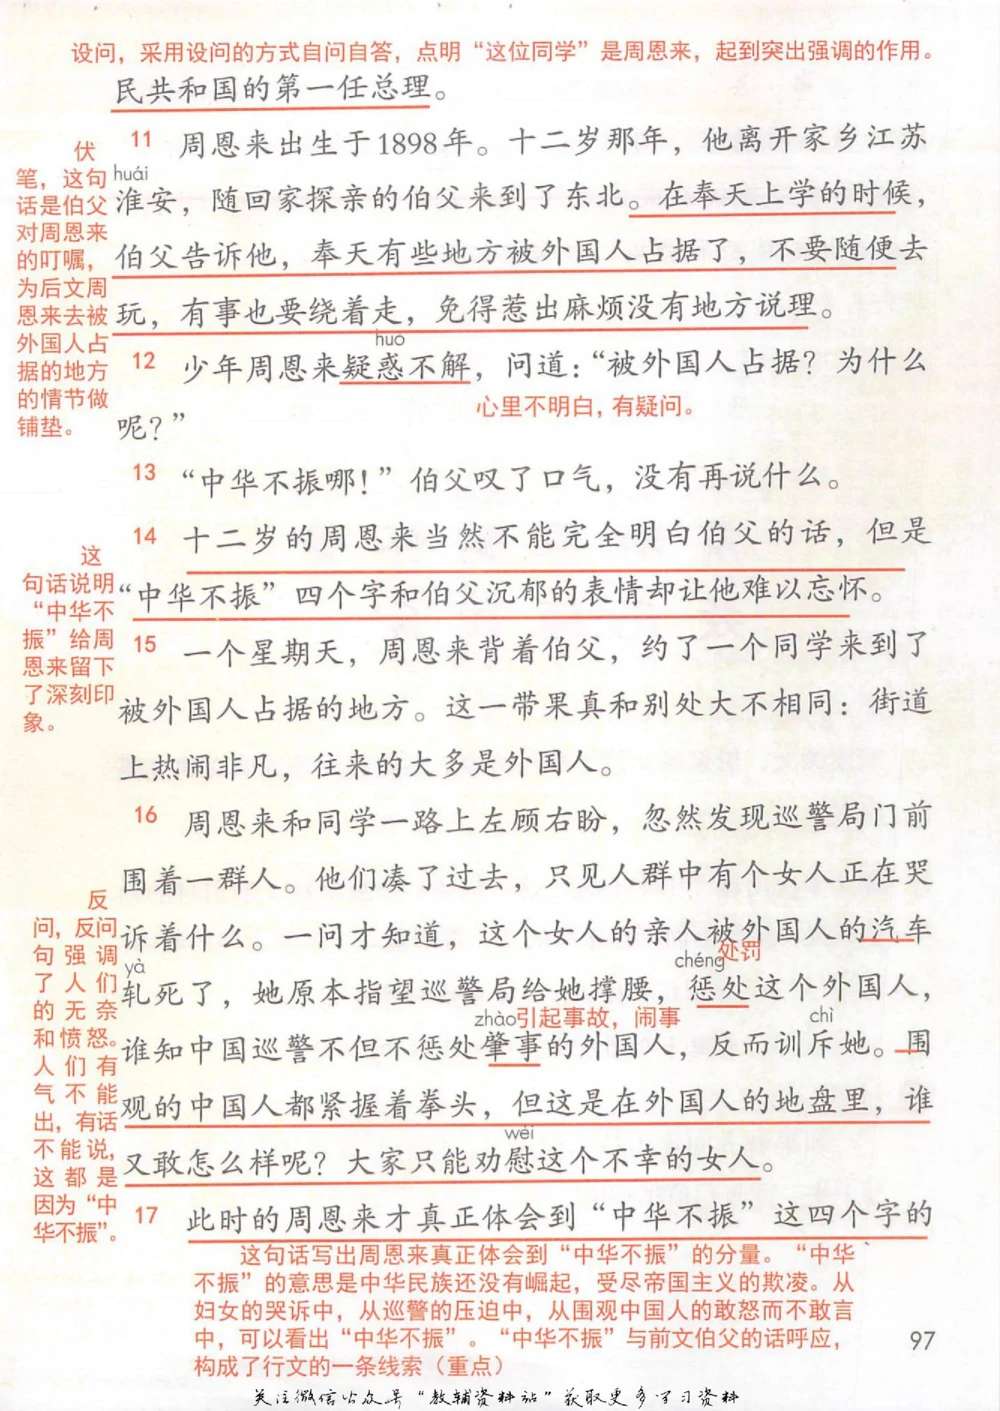 设问，采用设问的方式自问自答，点明“这位同学”是周恩来，起到突出强调的作用。
民共和国的第一任总理。
11 周恩来出生于1898年。十二岁那年，他离开家乡江苏
huái
淮安，随回家探亲的伯父来到了东北。在奉天上学的时候，
伯父告诉他，奉天有些地方被外国人占据了，不要随便去
玩，有事也要绕着走，免得惹出麻烦没有地方说理。
伏
笔，这句
话是伯父
对周恩来
的叮嘱，
为后文周
恩来去被
外国人占
据的地方
的情节做
铺垫。
huo
12 少年周恩来疑惑不解，问道：“被外国人占据？为什么
心里不明白，有疑问。
呢？”
13 “中华不振哪！”伯父叹了口气，没有再说什么。
14 十二岁的周恩来当然不能完全明白伯父的话，但是
“中华不振”四个字和伯父沉郁的表情却让他难以忘怀。
这
句话说明
“中华不
振”给周
恩来留下
了深刻印
象。
15 一个星期天，周恩来背着伯父，约了一个同学来到了
被外国人占据的地方。这一带果真和别处大不相同：街道
上热闹非凡，往来的大多是外国人。
16 周恩来和同学一路上左顾右盼，忽然发现巡警局门前
围着一群人。他们凑了过去，只见人群中有个女人正在哭
诉着什么。一问才知道，这个女人的亲人被外国人的汽车
yà chéng 处罚
轧死了，她原本指望巡警局给她撑腰，惩处这个外国人，
zhào 引起事故，闹事 chì
谁知中国巡警不但不惩处肇事的外国人，反而训斥她。围
观的中国人都紧握着拳头，但这是在外国人的地盘里，谁
wèi
又敢怎么样呢？大家只能劝慰这个不幸的女人。
反
问，反问
句强调
了人们
的无奈
和愤怒。
人们有
气不能
出，有话
不能说，
这都是
因为“中
华不振”。
17 此时的周恩来才真正体会到“中华不振”这四个字的
这句话写出周恩来真正体会到“中华不振”的分量。“中华
不振”的意思是中华民族还没有崛起，受尽帝国主义的欺凌。从
妇女的哭诉中，从巡警的压迫中，从围观中国人的敢怒而不敢言
中，可以看出“中华不振”。“中华不振”与前文伯父的话呼应，
构成了行文的一条线索（重点）
97
关注微信公众号“教辅资料站”获取更多学习资料